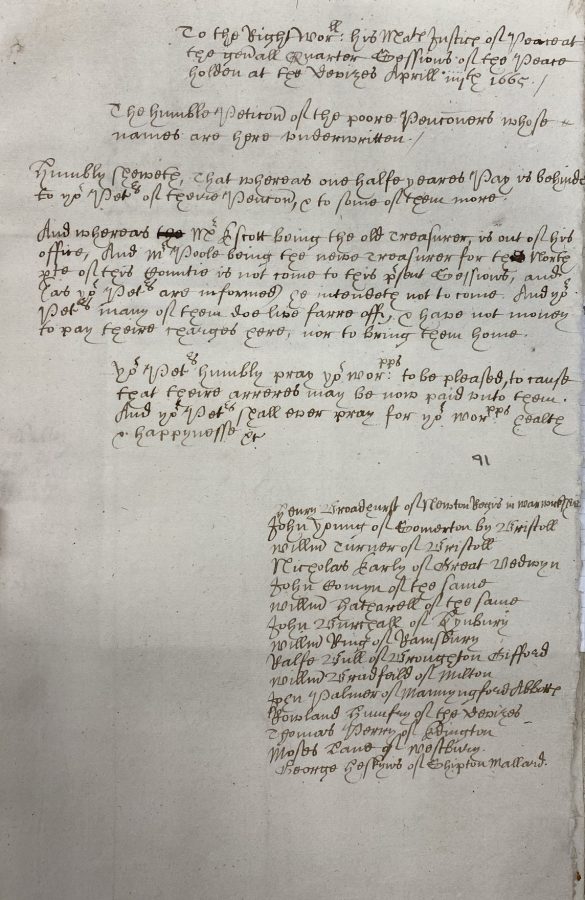 To the Right Wor:ll his Maties Justices of Peace at
the gen'all Quarter Sessions of the Peace
holden at the Devizes Aprill iiijth 1665 /
The humble Peticon of the poore Penconers whose
names are here underwritten /
Humbly Sheweth, That whereas one halfe yeares Pay is behinde
to yor Petrs of theire Pencon, & to some of them more.
And whereas the Mr Escott being the old Treasurer, is out of his
office, And Mr Poole being the newe Treasurer for the North
pte of this Countie is not come to this psent Sessions, and
(as yor Petrs are informed) he intendeth not to come. And yor
Petrs many of them doe live farre off, & have not money
to pay theire charges here, nor to bring them home.
Yor Petrs humbly pray yor wor:pps to be pleased, to cause
that theire arreres may be now paid unto them.
And yor Petrs shall ever pray for yor worpps health
& happynesse &c
91
Henry Broadhurst of Newton Regis in
John Young of Somerton by Bristoll
Willm Turner of Bristoll
Nicholas Early of Great Bedwyn
John Comyn of the same
Willm Hatharell of the same
John Burchall of
Willm Ring of Ramsbury
Ralfe Bull of Broughton Gifford
Willm Bradfeild of Milton
John Palmer of Mannyngford Abbotts
Rowland Humfry of the Devizes
Thomas Perry of Edington
Moses Lane of Westbury.
George Heskyns of Shipton Mallard.